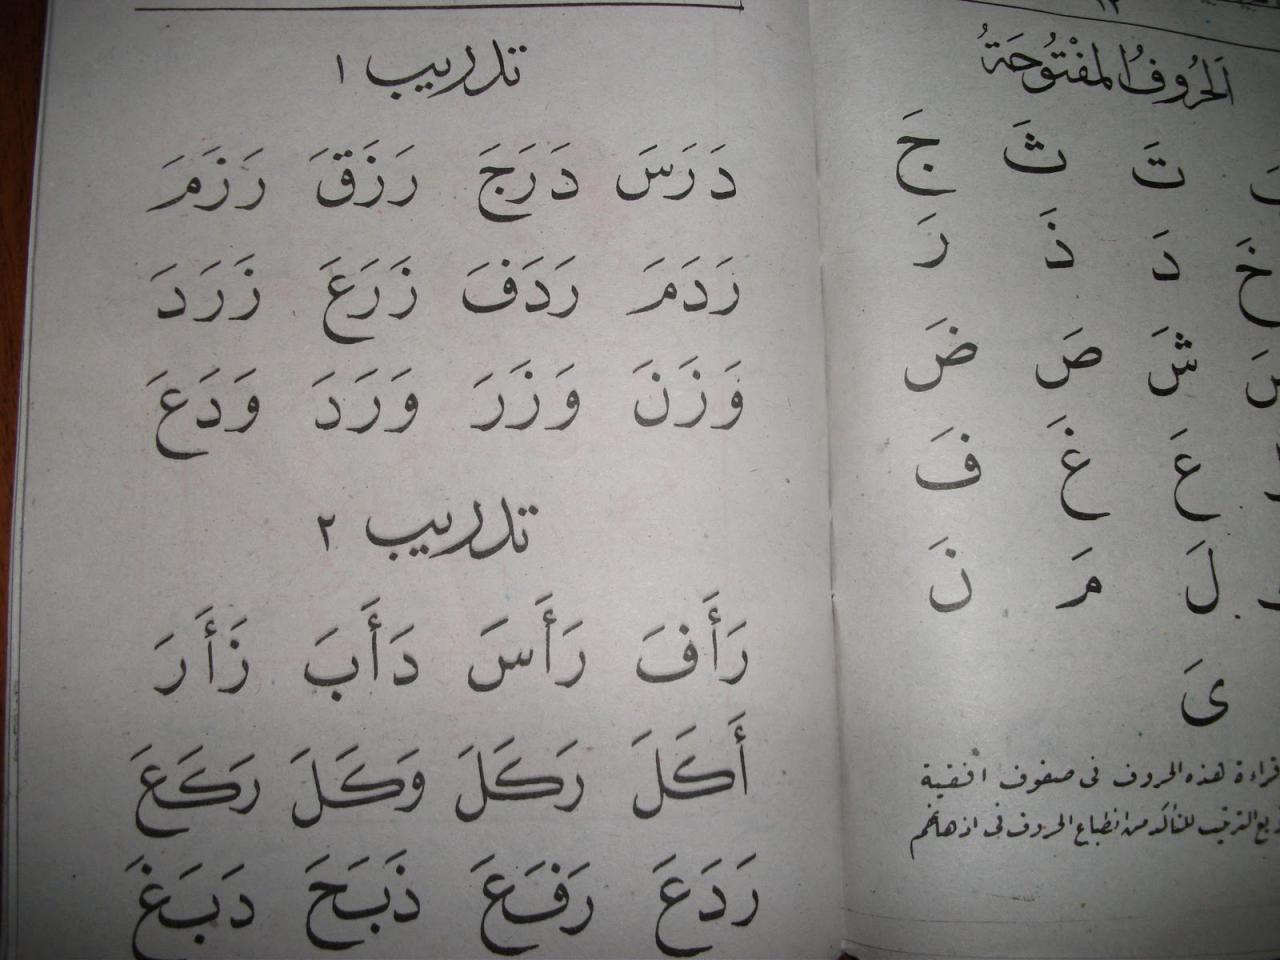 اَلحُرُوفُ المفْتُوحَةُ
تَ ثَ جَ
خَ دَ ذَ رَ
شَ صَ ضَ
عَ غَ فَ
لَ مَ نَ
ىَ
قراءة هذه الحروف فى صفوف افقية
للتأكد من انطباع الحروف فى اذهانهم
تدريب ١
دَرَسَ دَرَجَ رَزَقَ رَزَمَ
رَدَمَ رَدَفَ زَرَعَ زَرَدَ
وَزَنَ وَزَرَ وَرَدَ وَدَعَ
تدريب ٢
رَأَفَ رَأَسَ دَأَبَ زَأَرَ
أَكَلَ رَكَلَ وَكَلَ رَكَعَ
رَدَعَ رَفَعَ ذَبَحَ دَبَغَ